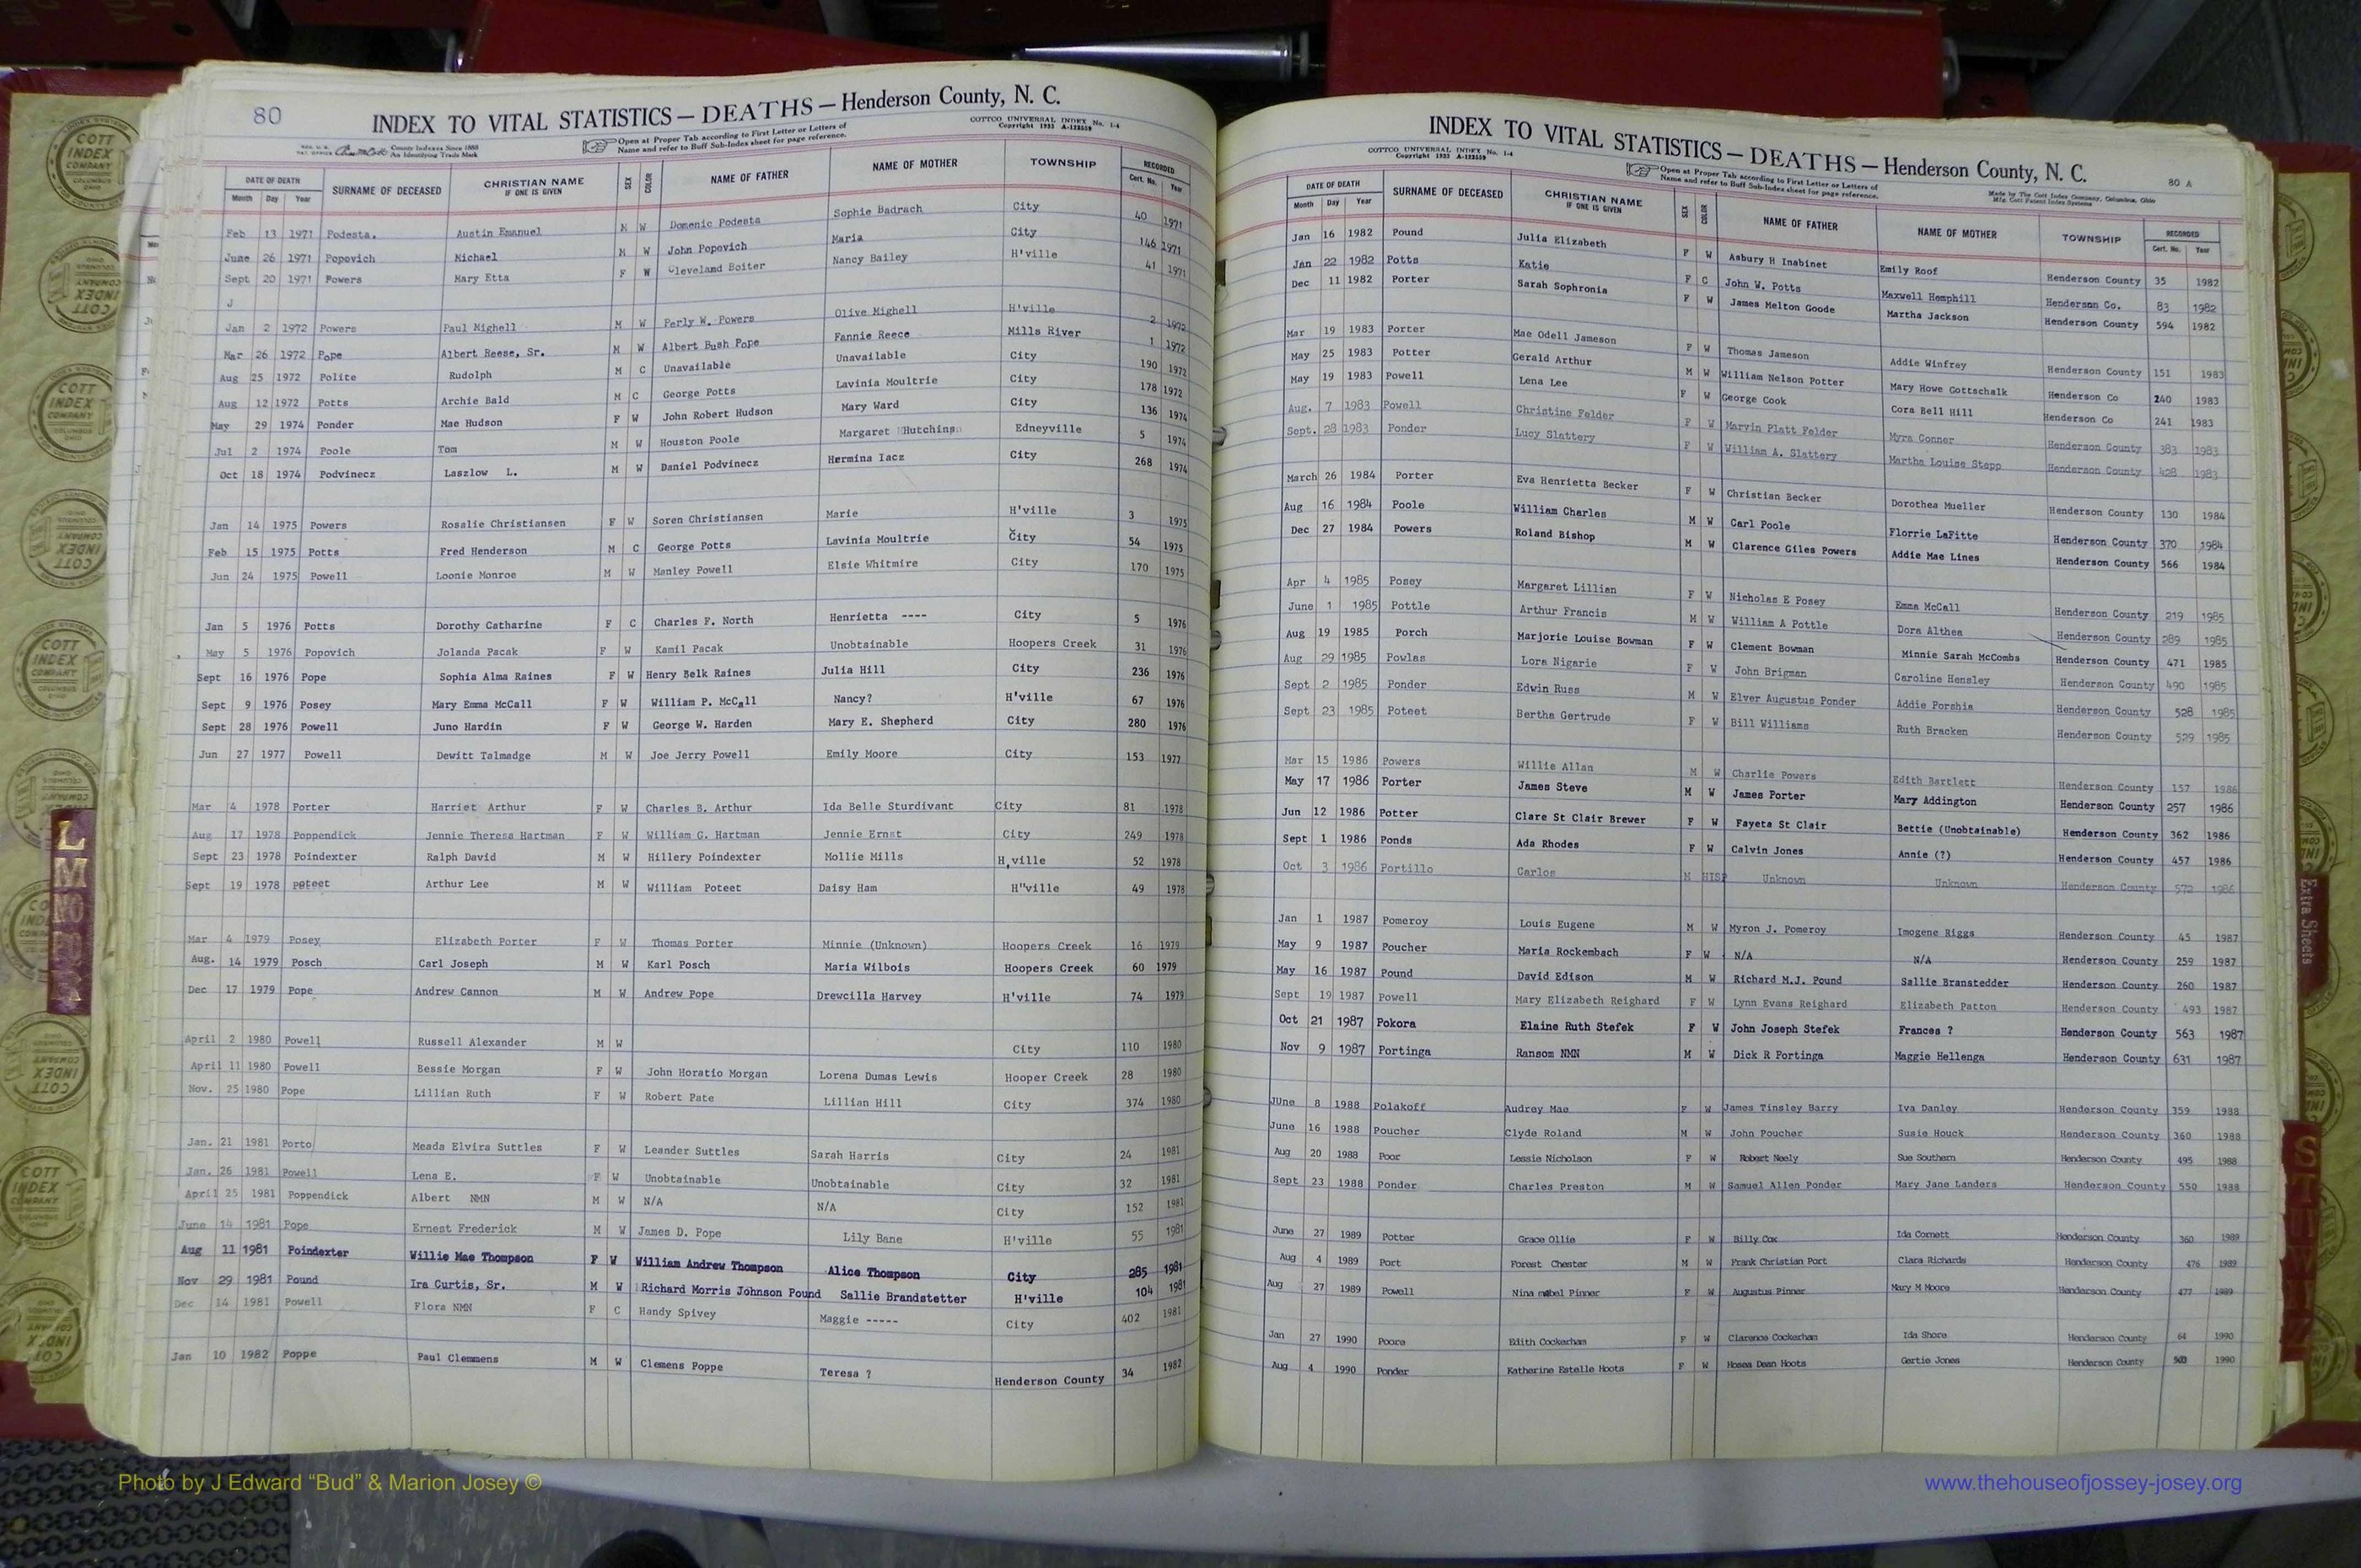 80
INDEX TO VITAL STATISTICS — DEATHS — Henderson County, N. C.
County Indexes Since 1888
An Identifying Trade Mark
Open at Proper Tab according to First Letter or Letters of
Name and refer to Buff Sub-Index sheet for page reference.
COTTCO UNIVERSAL INDEX No. 1-4
Copyright 1933 A-122559
DATE OF DEATH SURNAME OF DECEASED CHRISTIAN NAME IF ONE IS GIVEN SEX COLOR NAME OF FATHER NAME OF MOTHER TOWNSHIP RECORDED
Month Day Year Cert. No. Year
Feb 13 1971 Podesta. Austin Emanuel M W Domenic Podesta Sophie Badrach City 40 1971
June 26 1971 Popovich Michael M W John Popovich Maria City 146 1971
Sept 20 1971 Powers Mary Etta F W Cleveland Boiter Nancy Bailey H'ville 41 1971
J
Jan 2 1972 Powers Paul Mighell M W Perly W. Powers Olive Mighell H'ville 2 1972
Mar 26 1972 Pope Albert Reese, Sr. M W Albert Bush Pope Fannie Reece Mills River 1 1972
Aug 25 1972 Polite Rudolph M C Unavailable Unavailable City 190 1972
Aug 12 1972 Potts Archie Bald M C George Potts Lavinia Moultrie City 178 1972
May 29 1974 Ponder Mae Hudson F W John Robert Hudson Mary Ward City 136 1974
Jul 2 1974 Poole Tom M W Houston Poole Margaret Hutchins Edneyville 5 1974
Oct 18 1974 Podvinecz Laszlow L. M W Daniel Podvinecz Hermina Iacz City 268 1974
Jan 14 1975 Powers Rosalie Christiansen F W Soren Christiansen Marie H'ville 3 1975
Feb 15 1975 Potts Fred Henderson M C George Potts Lavinia Moultrie City 54 1975
Jun 24 1975 Powell Loonie Monroe M W Manley Powell Elsie Whitmire City 170 1975
Jan 5 1976 Potts Dorothy Catharine F C Charles F. North Henrietta ---- City 5 1976
May 5 1976 Popovich Jolanda Pacak F W Kamil Pacak Unobtainable Hoopers Creek 31 1976
Sept 16 1976 Pope Sophia Alma Raines F W Henry Belk Raines Julia Hill City 236 1976
Sept 9 1976 Posey Mary Emma McCall F W William P. McCall Nancy? H'ville 67 1976
Sept 28 1976 Powell Juno Hardin F W George W. Harden Mary E. Shepherd City 280 1976
Jun 27 1977 Powell Dewitt Talmadge M W Joe Jerry Powell Emily Moore City 153 1977
Mar 4 1978 Porter Harriet Arthur F W Charles B. Arthur Ida Belle Sturdivant City 81 1978
Aug 17 1978 Poppendick Jennie Theresa Hartman F W William G. Hartman Jennie Ernst City 249 1978
Sept 23 1978 Poindexter Ralph David M W Hillery Poindexter Mollie Mills H,ville 52 1978
Sept 19 1978 poteet Arthur Lee M W William Poteet Daisy Ham H"ville 49 1978
Mar 4 1979 Posey Elizabeth Porter F W Thomas Porter Minnie (Unknown) Hoopers Creek 16 1979
Aug. 14 1979 Posch Carl Joseph M W Karl Posch Maria Wilbois Hoopers Creek 60 1979
Dec 17 1979 Pope Andrew Cannon M W Andrew Pope Drewcilla Harvey H'ville 74 1979
April 2 1980 Powell Russell Alexander M W City 110 1980
April 11 1980 Powell Bessie Morgan F W John Horatio Morgan Lorena Dumas Lewis Hooper Creek 28 1980
Nov. 25 1980 Pope Lillian Ruth F W Robert Pate Lillian Hill City 374 1980
Jan. 21 1981 Porto Meada Elvira Suttles F W Leander Suttles Sarah Harris City 24 1981
Jan. 26 1981 Powell Lena E. F W Unobtainable Unobtainable City 32 1981
April 25 1981 Poppendick Albert NMN M W N/A N/A City 152 1981
June 14 1981 Pope Ernest Frederick M W James D. Pope Lily Bane H'ville 55 1981
Aug 11 1981 Poindexter Willie Mae Thompson F W William Andrew Thompson Alice Thompson City 285 1981
Nov 29 1981 Pound Ira Curtis, Sr. M W Richard Morris Johnson Pound Sallie Brandstetter H'ville 104 1981
Dec 14 1981 Powell Flora NMN F C Handy Spivey Maggie ----- City 402 1981
Jan 10 1982 Poppe Paul Clemmens M W Clemens Poppe Teresa ? Henderson County 34 1982
INDEX TO VITAL STATISTICS — DEATHS — Henderson County, N. C.
80 A
COTTCO UNIVERSAL INDEX No. 1-4
Copyright 1933 A-122559
Open at Proper Tab according to First Letter or Letters of
Name and refer to Buff Sub-Index sheet for page reference.
Made by The Cott Index Company, Columbus, Ohio
Mfg. Cott Patent Index Systems
DATE OF DEATH SURNAME OF DECEASED CHRISTIAN NAME IF ONE IS GIVEN SEX COLOR NAME OF FATHER NAME OF MOTHER TOWNSHIP RECORDED
Month Day Year Cert. No. Year
Jan 16 1982 Pound Julia Elizabeth F W Asbury H Inabinet Emily Roof Henderson County 35 1982
Jan 22 1982 Potts Katie F C John W. Potts Maxwell Hemphill Henderson Co. 83 1982
Dec 11 1982 Porter Sarah Sophronia F W James Melton Goode Martha Jackson Henderson County 594 1982
Mar 19 1983 Porter Mae Odell Jameson F W Thomas Jameson Addie Winfrey Henderson County 151 1983
May 25 1983 Potter Gerald Arthur M W William Nelson Potter Mary Howe Gottschalk Henderson Co 240 1983
May 19 1983 Powell Lena Lee F W George Cook Cora Bell Hill Henderson Co 241 1983
Aug. 7 1983 Powell Christine Felder F W Marvin Platt Felder Myra Conner Henderson County 383 1983
Sept. 28 1983 Ponder Lucy Slattery F W William A. Slattery Martha Louise Stepp Henderson County 428 1983
March 26 1984 Porter Eva Henrietta Becker F W Christian Becker Dorothea Mueller Henderson County 130 1984
Aug 16 1984 Poole William Charles M W Carl Poole Florrie LaFitte Henderson County 370 1984
Dec 27 1984 Powers Roland Bishop M W Clarence Giles Powers Addie Mae Lines Henderson County 566 1984
Apr 4 1985 Posey Margaret Lillian F W Nicholas E Posey Emma McCall Henderson County 219 1985
June 1 1985 Pottle Arthur Francis M W William A Pottle Dora Althea Henderson County 289 1985
Aug 19 1985 Porch Marjorie Louise Bowman F W Clement Bowman Minnie Sarah McCombs Henderson County 471 1985
Aug 29 1985 Powlas Lora Nigarie F W John Brigman Caroline Hensley Henderson County 490 1985
Sept 2 1985 Ponder Edwin Russ M W Elver Augustus Ponder Addie Porshia Henderson County 528 1985
Sept 23 1985 Poteet Bertha Gertrude F W Bill Williams Ruth Bracken Henderson County 529 1985
Mar 15 1986 Powers Willie Allan M W Charlie Powers Edith Bartlett Henderson County 157 1986
May 17 1986 Porter James Steve M W James Porter Mary Addington Henderson County 257 1986
Jun 12 1986 Potter Clare St Clair Brewer F W Fayeta St Clair Bettie (Unobtainable) Henderson County 362 1986
Sept 1 1986 Ponds Ada Rhodes F W Calvin Jones Annie (?) Henderson County 457 1986
Oct 3 1986 Portillo Carlos M HISP Unknown Unknown Henderson County 572 1986
Jan 1 1987 Pomeroy Louis Eugene M W Myron J. Pomeroy Imogene Riggs Henderson County 45 1987
May 9 1987 Poucher Maria Rockembach F W N/A N/A Henderson County 259 1987
May 16 1987 Pound David Edison M W Richard M.J. Pound Sallie Branstedder Henderson County 260 1987
Sept 19 1987 Powell Mary Elizabeth Reighard F W Lynn Evans Reighard Elizabeth Patton Henderson County 493 1987
Oct 21 1987 Pokora Elaine Ruth Stefek F W John Joseph Stefek Frances ? Henderson County 563 1987
Nov 9 1987 Portinga Ransom NMN M W Dick R Portinga Maggie Hellenga Henderson County 631 1987
JUne 8 1988 Polakoff Audrey Mae F W James Tinsley Barry Iva Danley Henderson County 359 1988
June 16 1988 Poucher Clyde Roland M W John Poucher Susie Houck Henderson County 360 1988
Aug 20 1988 Poor Lessie Nicholson F W Robert Neely Sue Southern Henderson County 495 1988
Sept 23 1988 Ponder Charles Preston M W Samuel Allen Ponder Mary Jane Landers Henderson County 550 1988
June 27 1989 Potter Grace Ollie F W Billy Cox Ida Cornett Henderson County 360 1989
Aug 4 1989 Port Forest Chester M W Frank Christian Port Clara Richards Henderson County 476 1989
Aug 27 1989 Powell Nina mabel Pinner F W Augustus Pinner Mary M Moore Henderson County 477 1989
Jan 27 1990 Poore Edith Cockerham F W Clarence Cockerham Ida Shore Henderson County 64 1990
Aug 4 1990 Ponder Katherine Estelle Hoots F W Hosea Dean Hoots Gertie Jones Henderson County 503 1990
L
M
NO
Extra Sheets
S
T
COTT INDEX COMPANY COLUMBUS OHIO
Photo by J Edward “Bud” & Marion Josey ©
www.thehouseofjossey-josey.org